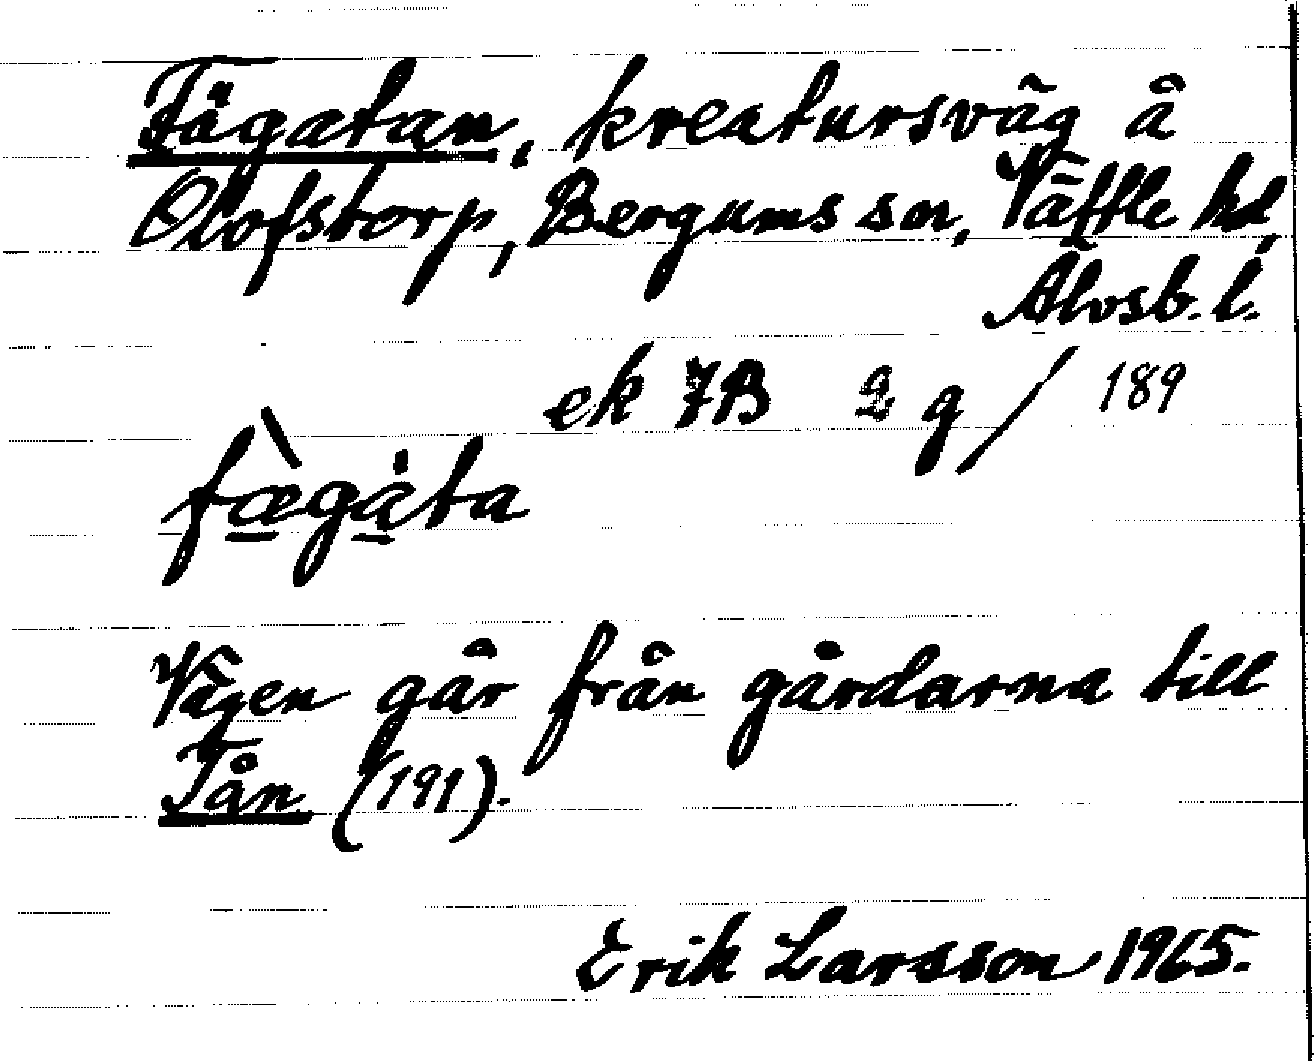 Fägatan, kreatursväg å
Olofstorp, Bergums sn, Vättle hd,
Älvsb. l.
ek 7B 2 g / 189
fæ̀gȧta
Vägen går från gårdarna till
Tån (191).
Erik Larsson 1965.